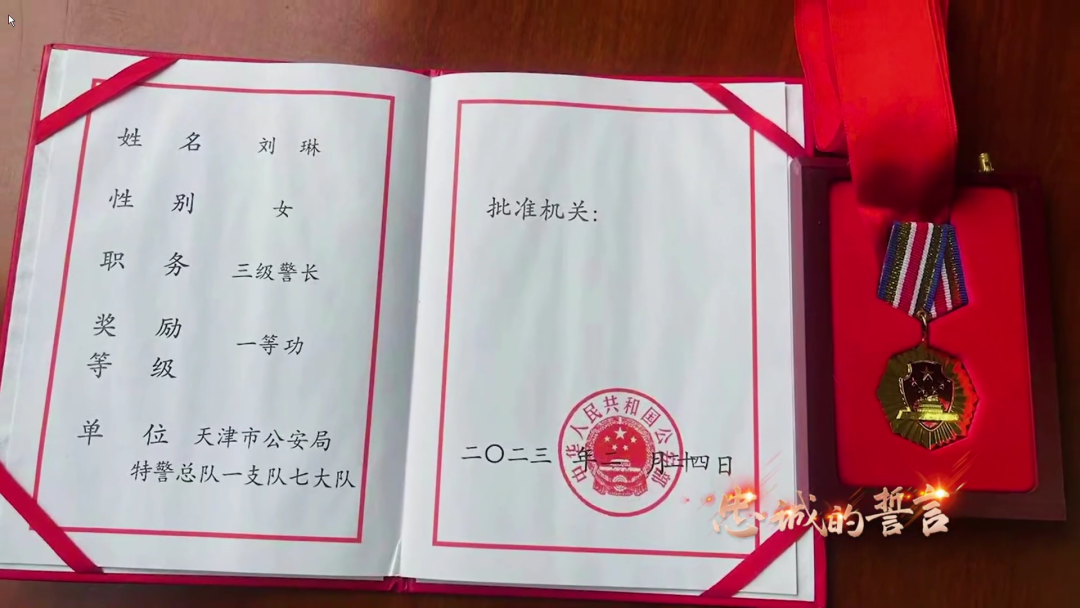 姓 名 刘 琳
性 别 女
职 务 三级警长
奖 励
等 级 一等功
单 位 天津市公安局
特警总队一支队七大队
批准机关:
中华人民共和国公安部
二〇二三 年 二 月十四日
忠诚的誓言